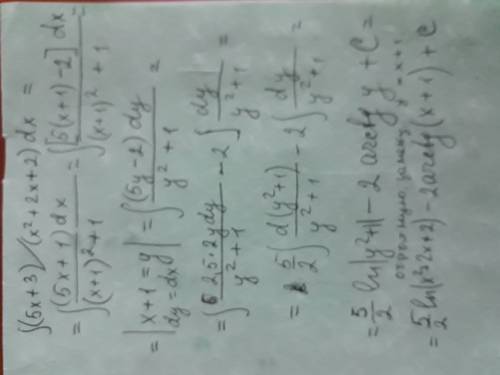 ∫(5x+3)/(x²+2x+2) dx =
= ∫ (5x+1) dx / ((x+1)²+1) = ∫ [5(x+1)-2] dx / ((x+1)²+1) =
= | x+1=y dy=dx | = ∫ (5y-2) dy / (y²+1) =
= ∫ 2,5·2y dy / (y²+1) - 2 ∫ dy / (y²+1) =
= 5/2 ∫ d(y²+1) / (y²+1) - 2 ∫ dy / (y²+1) =
= 5/2 ln|y²+1| - 2 arctg y + C =
обратную замену y = x+1
= 5/2 ln(x²+2x+2) - 2 arctg(x+1) + C